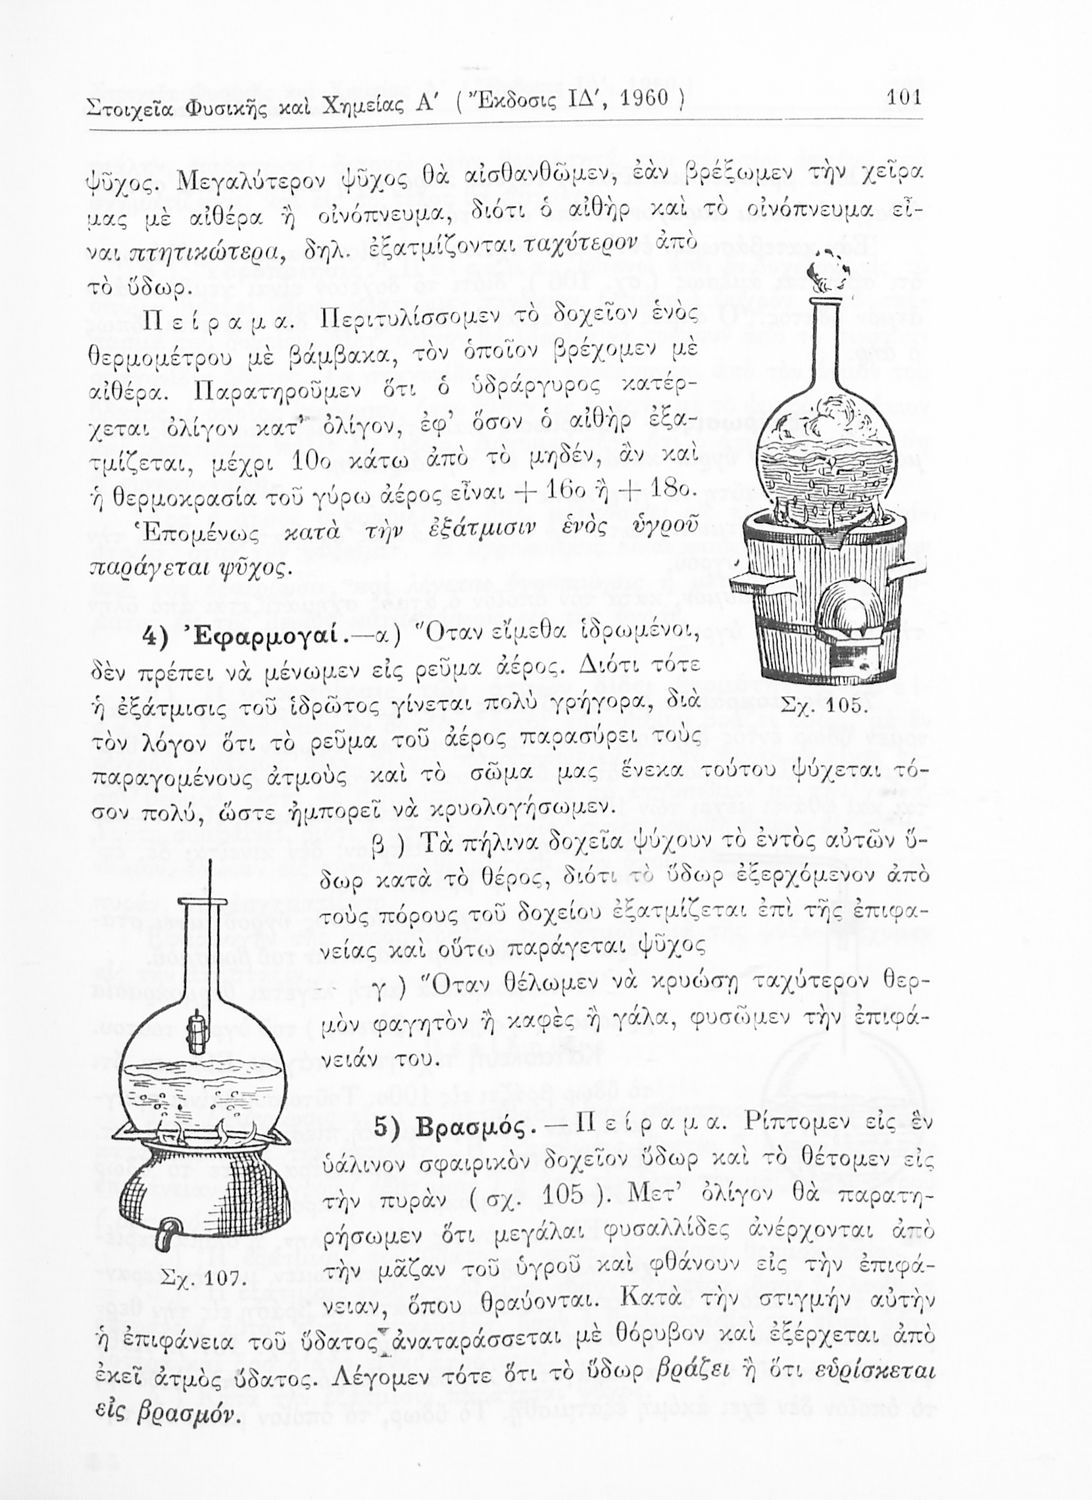 Στοιχεῖα Φυσικῆς καὶ Χημείας Α′ ( Ἔκδοσις ΙΔ′, 1960 )
101
ψῦχος. Μεγαλύτερον ψῦχος θὰ αἰσθανθῶμεν, ἐὰν βρέξωμεν τὴν χεῖρα
μας μὲ αἰθέρα ἢ οἰνόπνευμα, διότι ὁ αἰθὴρ καὶ τὸ οἰνόπνευμα εἶ-
ναι πτητικώτερα, δηλ. ἐξατμίζονται ταχύτερον ἀπὸ
τὸ ὕδωρ.
Πείραμα. Περιτυλίσσομεν τὸ δοχεῖον ἑνὸς
θερμομέτρου μὲ βάμβακα, τὸν ὁποῖον βρέχομεν μὲ
αἰθέρα. Παρατηροῦμεν ὅτι ὁ ὑδράργυρος κατέρ-
χεται ὀλίγον κατ’ ὀλίγον, ἐφ’ ὅσον ὁ αἰθὴρ ἐξα-
τμίζεται, μέχρι 10ο κάτω ἀπὸ τὸ μηδέν, ἂν καὶ
ἡ θερμοκρασία τοῦ γύρω ἀέρος εἶναι + 16ο ἢ + 18ο.
Ἑπομένως κατὰ τὴν ἐξάτμισιν ἑνὸς ὑγροῦ
παράγεται ψῦχος.
4) Ἐφαρμογαί.—α) Ὅταν εἴμεθα ἱδρωμένοι,
δὲν πρέπει νὰ μένωμεν εἰς ρεῦμα ἀέρος. Διότι τότε
ἡ ἐξάτμισις τοῦ ἱδρῶτος γίνεται πολὺ γρήγορα, διὰ
Σχ. 105.
τὸν λόγον ὅτι τὸ ρεῦμα τοῦ ἀέρος παρασύρει τοὺς
παραγομένους ἀτμοὺς καὶ τὸ σῶμα μας ἕνεκα τούτου ψύχεται τό-
σον πολύ, ὥστε ἠμπορεῖ νὰ κρυολογήσωμεν.
β ) Τὰ πήλινα δοχεῖα ψύχουν τὸ ἐντὸς αὐτῶν ὕ-
δωρ κατὰ τὸ θέρος, διότι τὸ ὕδωρ ἐξερχόμενον ἀπὸ
τοὺς πόρους τοῦ δοχείου ἐξατμίζεται ἐπὶ τῆς ἐπιφα-
νείας καὶ οὕτω παράγεται ψῦχος
γ ) Ὅταν θέλωμεν νὰ κρυώσῃ ταχύτερον θερ-
μὸν φαγητὸν ἢ καφὲς ἢ γάλα, φυσῶμεν τὴν ἐπιφά-
νειάν του.
5) Βρασμός.—Πείραμα. Ρίπτομεν εἰς ἓν
ὑάλινον σφαιρικὸν δοχεῖον ὕδωρ καὶ τὸ θέτομεν εἰς
τὴν πυρὰν ( σχ. 105 ). Μετ’ ὀλίγον θὰ παρατη-
ρήσωμεν ὅτι μεγάλαι φυσαλλίδες ἀνέρχονται ἀπὸ
τὴν μᾶζαν τοῦ ὑγροῦ καὶ φθάνουν εἰς τὴν ἐπιφά-
Σχ. 107.
νειαν, ὅπου θραύονται. Κατὰ τὴν στιγμὴν αὐτὴν
ἡ ἐπιφάνεια τοῦ ὕδατος ἀναταράσσεται μὲ θόρυβον καὶ ἐξέρχεται ἀπὸ
ἐκεῖ ἀτμὸς ὕδατος. Λέγομεν τότε ὅτι τὸ ὕδωρ βράζει ἢ ὅτι εὑρίσκεται
εἰς βρασμόν.